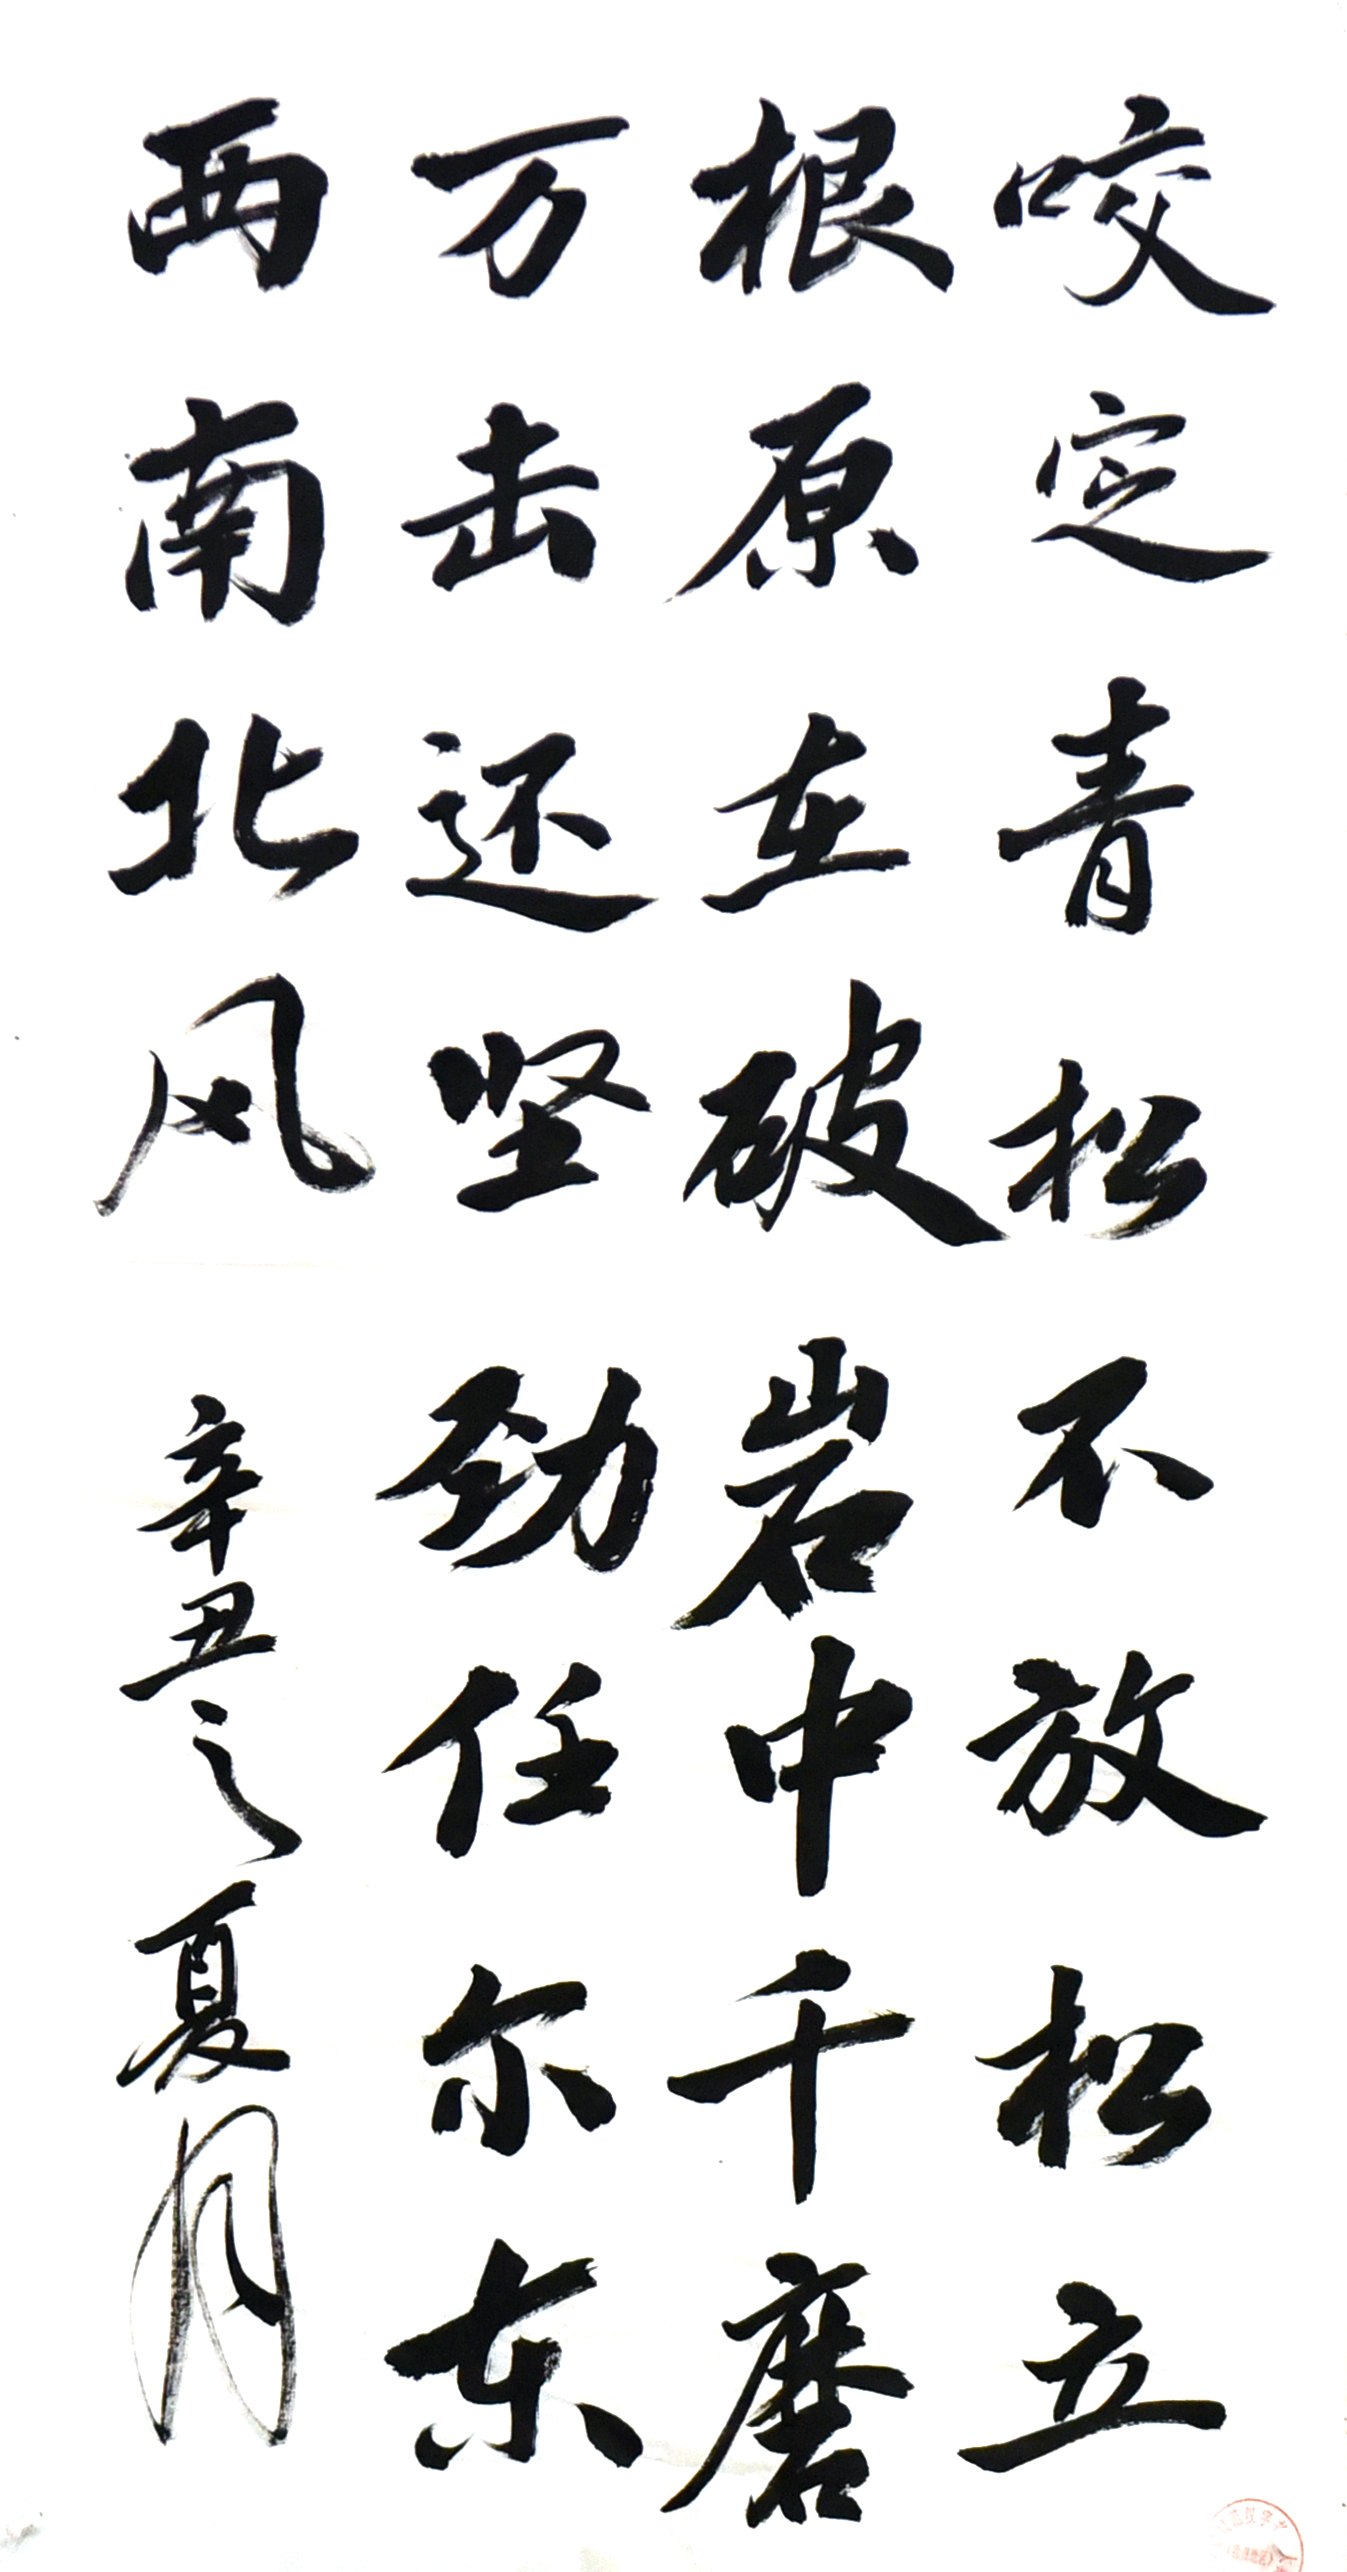 咬定青松不放松立
根原在破岩中千磨
万击还坚劲任尔东
西南北风
辛丑之夏月